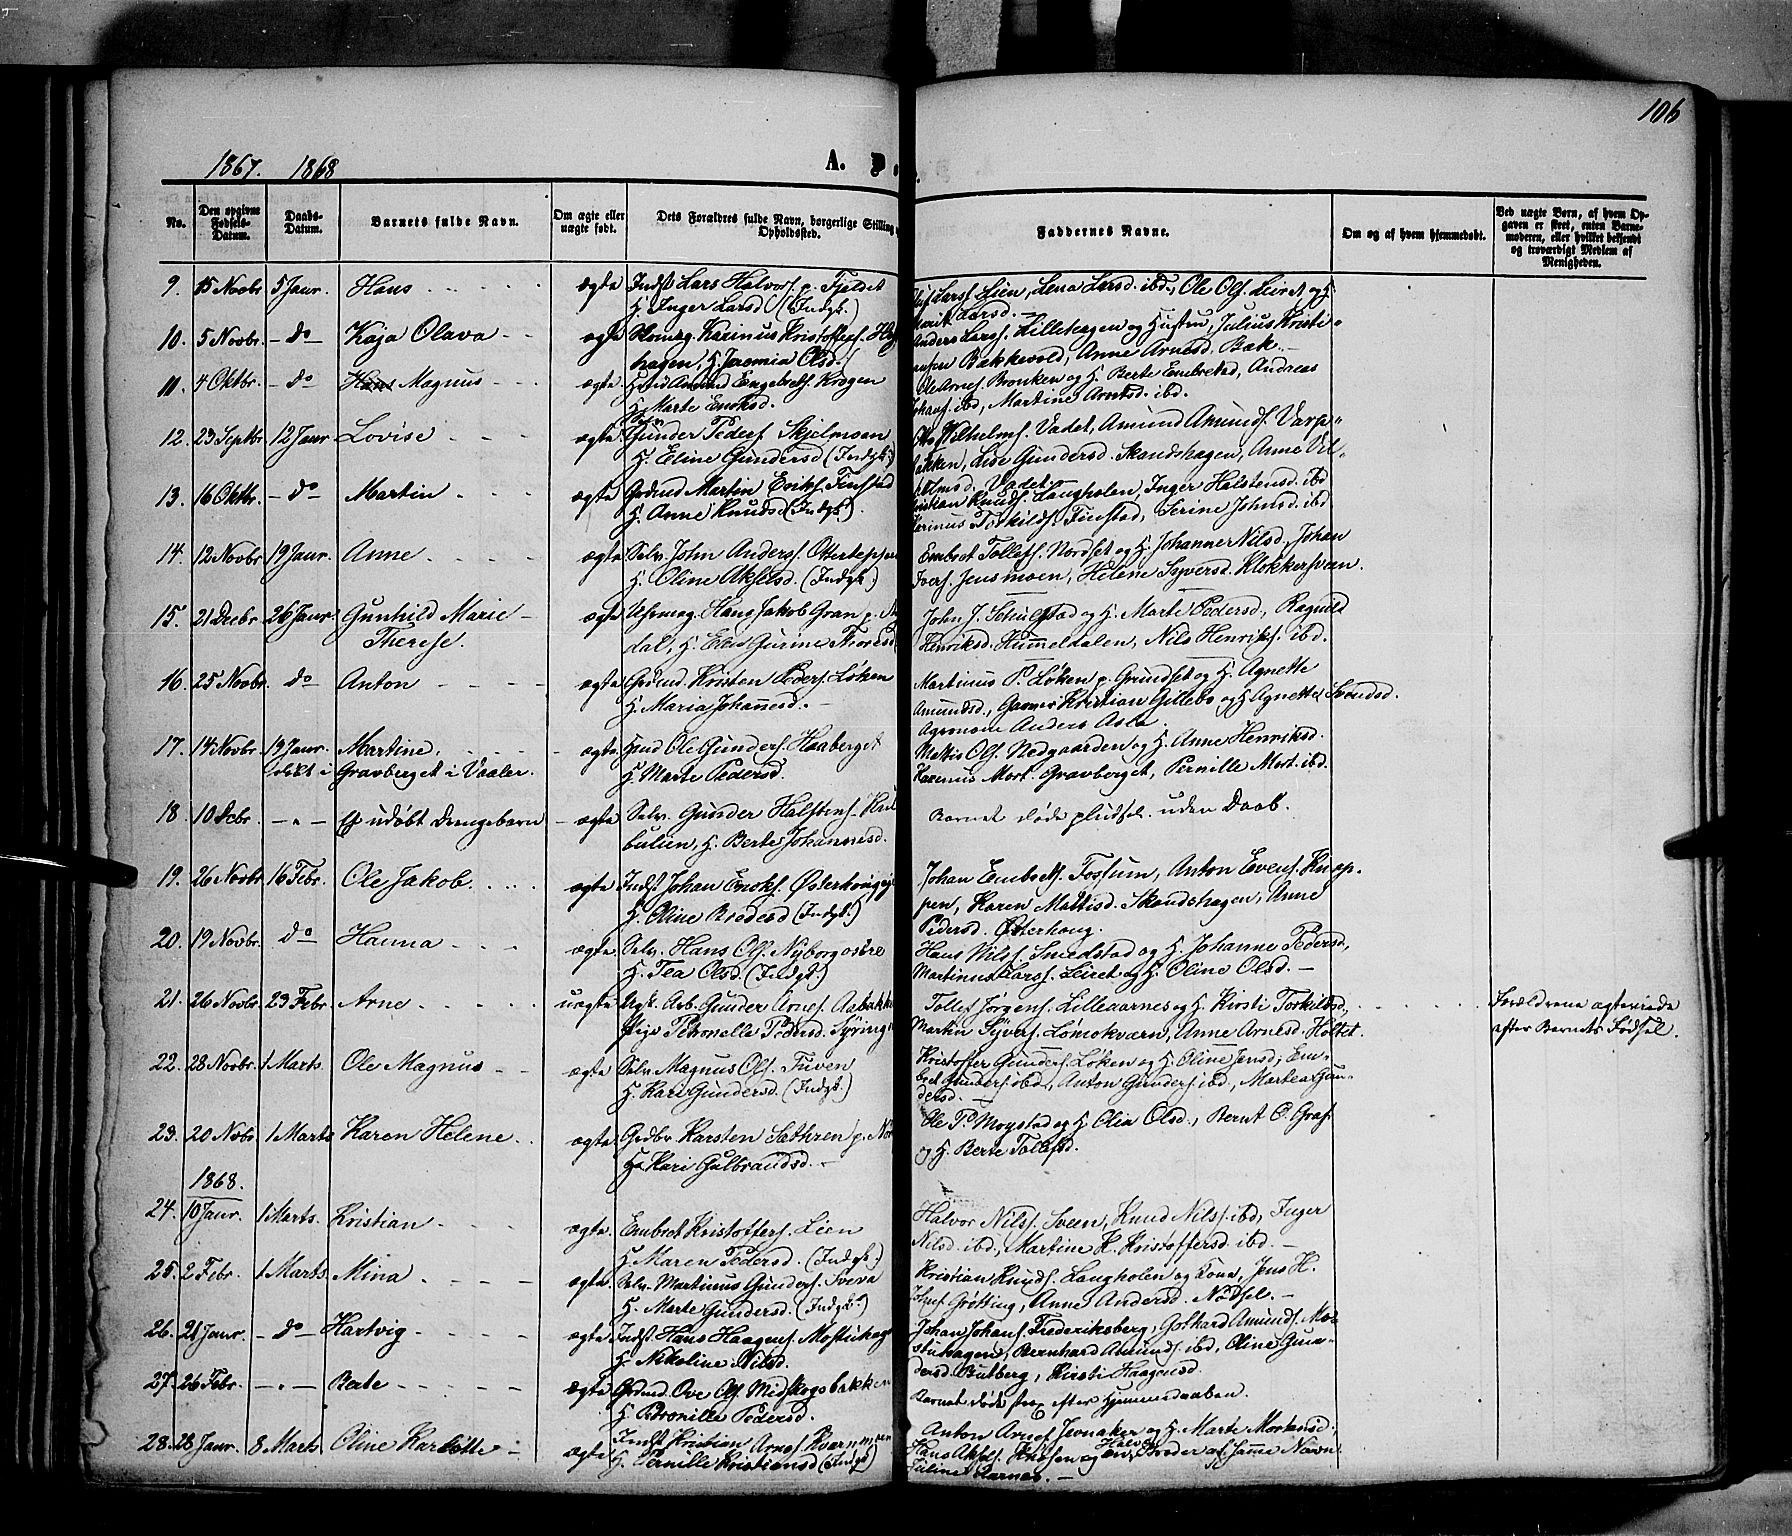 106
1867. 1868
A.
No.
Den opgivne Fødsels-Datum.
Daabs-Datum.
Barnets fulde Navn.
Om ægte eller uægte født.
Dets Forældres fulde Navn, borgerlige Stilling
Opholdssted.
Faddernes Navne.
Om og af hvem hjemmedøbt.
Ved uægte Børn, af hvem Opgaven er skeet, enten Barnemoderen, eller hvilket bekjendt og troværdigt Medlem af Menigheden.
9. 15 Novbr. 5 Janr. Hans ægte Indst Lars Halvors. p. Fjeldet
H. Inger Larsd (Indgk.)
Larss. Lien, Lena Larsd. ibd., Ole Ols. Leiret og H.
Marit Larsd.
10. 5 Novbr. do Kaja Olava ægte Karinus Kristoffers.
hagen, H. Olsd.
Anders Larss. Lillebergen og Hustru, Julius Kristi-
ansen Bakkevold, Anne Arnesd. Bak.
11. 4 Oktbr. do Hans Magnus ægte Engebrets. Krogen
H. Marte Enoksd.
Ole Arnes. Bronken og H. Berte Embretsd, Andreas
Johans. ibd, Martine Arntsd. ibd.
12. 23 Septbr 12 Janr Lovise ægte Gunder Peders. Skjelmoen
H. Eline Gundersd (Indgk.)
Wilhelms. Vadet, Amund Amunds. Varpe-
bakken, Lise Gundersd. Skandshagen, Anne Vil-
helmsd. Vadet
13. 16 Oktbr. do Martin ægte Grdmd Martin Eriks. Finstad
H. Anne Knudsd (Indgk.)
Kristian Knuds. Langholen, Inger Halstensd. ibd
Karinus Torkilds. Finstad, Serine Johnsd. ibd.
14. 12 Novbr 19 Janr. Anne ægte Selv. John Anders. Ottertep
H. Oline Akselsd. (Indgk.)
Embret Tollefs. Nordset og H. Johanne Nilsd., Johan
Ivers. Jensmoen, Helene Syversd. Klokkersveen.
15. 21 Decbr 26 Janr Gunhild Marie
Therese.
ægte Hans Jakob Gran p.
dal, H. Gurine Thoresd
John J. Schulstad og H. Marte Pedersd., Ragnild
Henriksd. Hummeldalen, Nils Henriks. ibd.
16. 25 Novbr. do Anton ægte Grdmd Kristen Peders. Løken
H. Maria Johannesd.
Martinus P. Løken p. Grundset og H. Agnette
Amundsd., Garver Kristian Gillebo og H. Agnette Svendsd.
Agronom Anders Aslø.
17. 14 Novbr. 19 Janr. Martine. ægte Hmd Ole Gunders. Haaberget
døbt i Gravberget i Vaaler. H. Marte Pedersd.
Mattis Ols. Nedgaarden og H. Anne Henriksd.
Karenus Mort. Gravberget, Pernille Mort. ibd.
18. 10 Debr. Et udøbt Drengebarn ægte Selv. Gunder Halstens.
bulien, H. Berte Johannesd.
Barnet døde pludsel. uden Daab.
19. 26 Novbr 16 Febr. Ole Jakob. ægte Indst Johan Enoks. Østerhoug
H. Oline Brødesd (Indgk.)
Johan Embrets. Fossum, Anton Evens. Knap-
pen, Karen Mattisd. Skandshagen, Anne
Pedersd. Østerhoug.
20. 19 Novbr. do Hanna ægte Selv. Hans Ols. Nyborg østre
H. Tea Olsd. (Indgk.)
Hans Nils. Smedstad og H. Johanne Pedersd,
Martinus Larss. Leiret og H. Oline Olsd.
21. 26 Novbr. 23 Febr. Arne uægte Ugk. Arb. Gunder Arnes. Aabakke
Pige Petronelle Pedersd.
Tollef Jørgens. Lilleaarnes og H. Kirsti Torkildsd.,
Martin Syvers. Lømokværn, Anne Arnesd. Holtet.
Forældrene ægteviede
efter Barnets Fødsel.
22. 28 Novbr. 1 Marts. Ole Magnus ægte Selv Magnus Ols. Tuven
H. Kari Gundersd. (Indgk.)
Kristoffer Gunders. Løken og H. Oline Jensd., Em-
bret Gunders. ibd., Anton Gunders. ibd., Martea Gun-
dersd.
23. 20 Nvbr. 1 Marts Karen Helene ægte Grdbr. Karsten Sæthren p.
H. Kari Gulbrandsd.
Ole P. Moystad og H. Olia Olsd., Bernt O. Graf
og H. Berte Tollefsd.
1868.
24. 10 Janr. 1 Marts. Kristian ægte. Embret Kristoffers. Lien
H. Maren Pedersd. (Indgk.)
Halvor Nils. Sveen, Knud Nils. ibd, Inger
Nilsd. ibd., Martine K. Kristoffersd. ibd.
25. 2 Febr. 1 Marts Mina ægte Selv. Martinus Gunders. Sveva
H. Marte Gundersd. (Indgk.)
Kristian Knuds. Langholen og Kona, Jens H.
Grøtting, Anne Andersd. Nødsel.
26. 21 Janr do Hartvig ægte Indst. Hans Haagens. Mostuhag
H. Nikoline Nilsd.
Johan Johans. Frederiksberg, Gothard Amunds. Mo-
stuhagen, Bernhard Amunds. ibd, Oline Gun-
dersd. Butberg, Kirsti Haagensd.
27. 26 Febr. Berte ægte Grdmd. Ove Ols. Midskogsbakken
H. Petronille Pedersd.
Barnet døde strax efter Hjemmedaaben.
28. 28 Janr. 8 Marts Oline Karlotte ægte Indst Kristian Arnes. Kværnmoen
H. Pernille Kristiansd (Indgk.)
Anton Arnes. Jevnaker og H. Marte Mortensd.
Hans Aksels. og en Broder af samme Navn